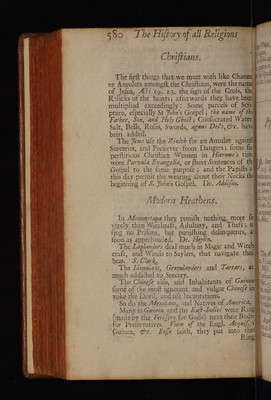 580 The History of all Religions
Christians.
The first things that we meet with like Charms
or Amulets amongst the Christians, were the name
of Jesus, Acts 19. 23. the sign of the Cross, the
Relicks of the Saints; afterwards they have been
multiplied exceedingly: Some parcels of Scri-
pture, especially St John's Gospel; the name of the
Father, Son, and Holy Ghost; Consecrated Water
Salt, Bells, Rosin, Swords, agnus Dei's, &c. have
been added.
The Jews use the for an Amulet against
Sorcerers, and Preserver from Dangers: some su-
perstitious Christian Women in Hierome's time
wore Parvula Evangelia, or short Sentences of the
Gospel to the same purpose; and the Papists to
this day permit the wearing about their Necks the
beginning of S. John's Gospel. Dr. Addison.
Modern Heathens.
In Monomotapa they punish nothing more se-
verely than Witchcraft, Adultery, and Theft;
sing no Prisons, but punishing delinquents, as
soon as apprehended. Dr. Heylin.
The Laplanders deal much in Magic and Witch-
craft, and Winds to Saylers, that navigate their
Seas. S. Clark.
The Livonians, Greenlanders and Tartars, are
much addicted to Sorcery.
The Chinese also, and Inhabitants of Guinea
some of the most ignorant and vulgar Chinese in-
voke the Devil, and use Incantations.
So do the Mexicans, and Natives of America.
Many in Guinea, and the East-Indies wear Rings
(made by the for Gods) next their Bodies
for Preservatives. View of the Engl. Acquis. in
Guinea, &c. faith, they put into their
Ring